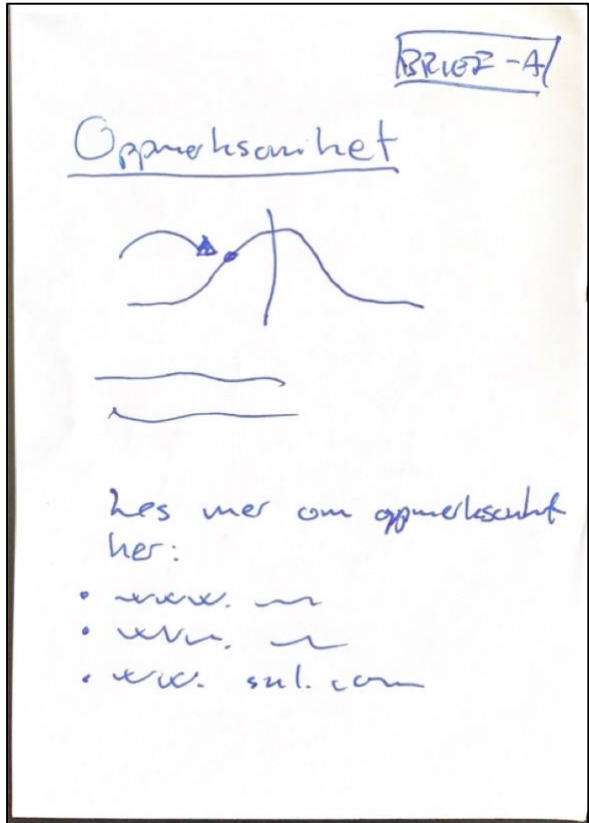 BRIEF-A
Oppmerksomhet
Les mer om oppmerksomhet
her:
• www.
• www.
• www. snl.com